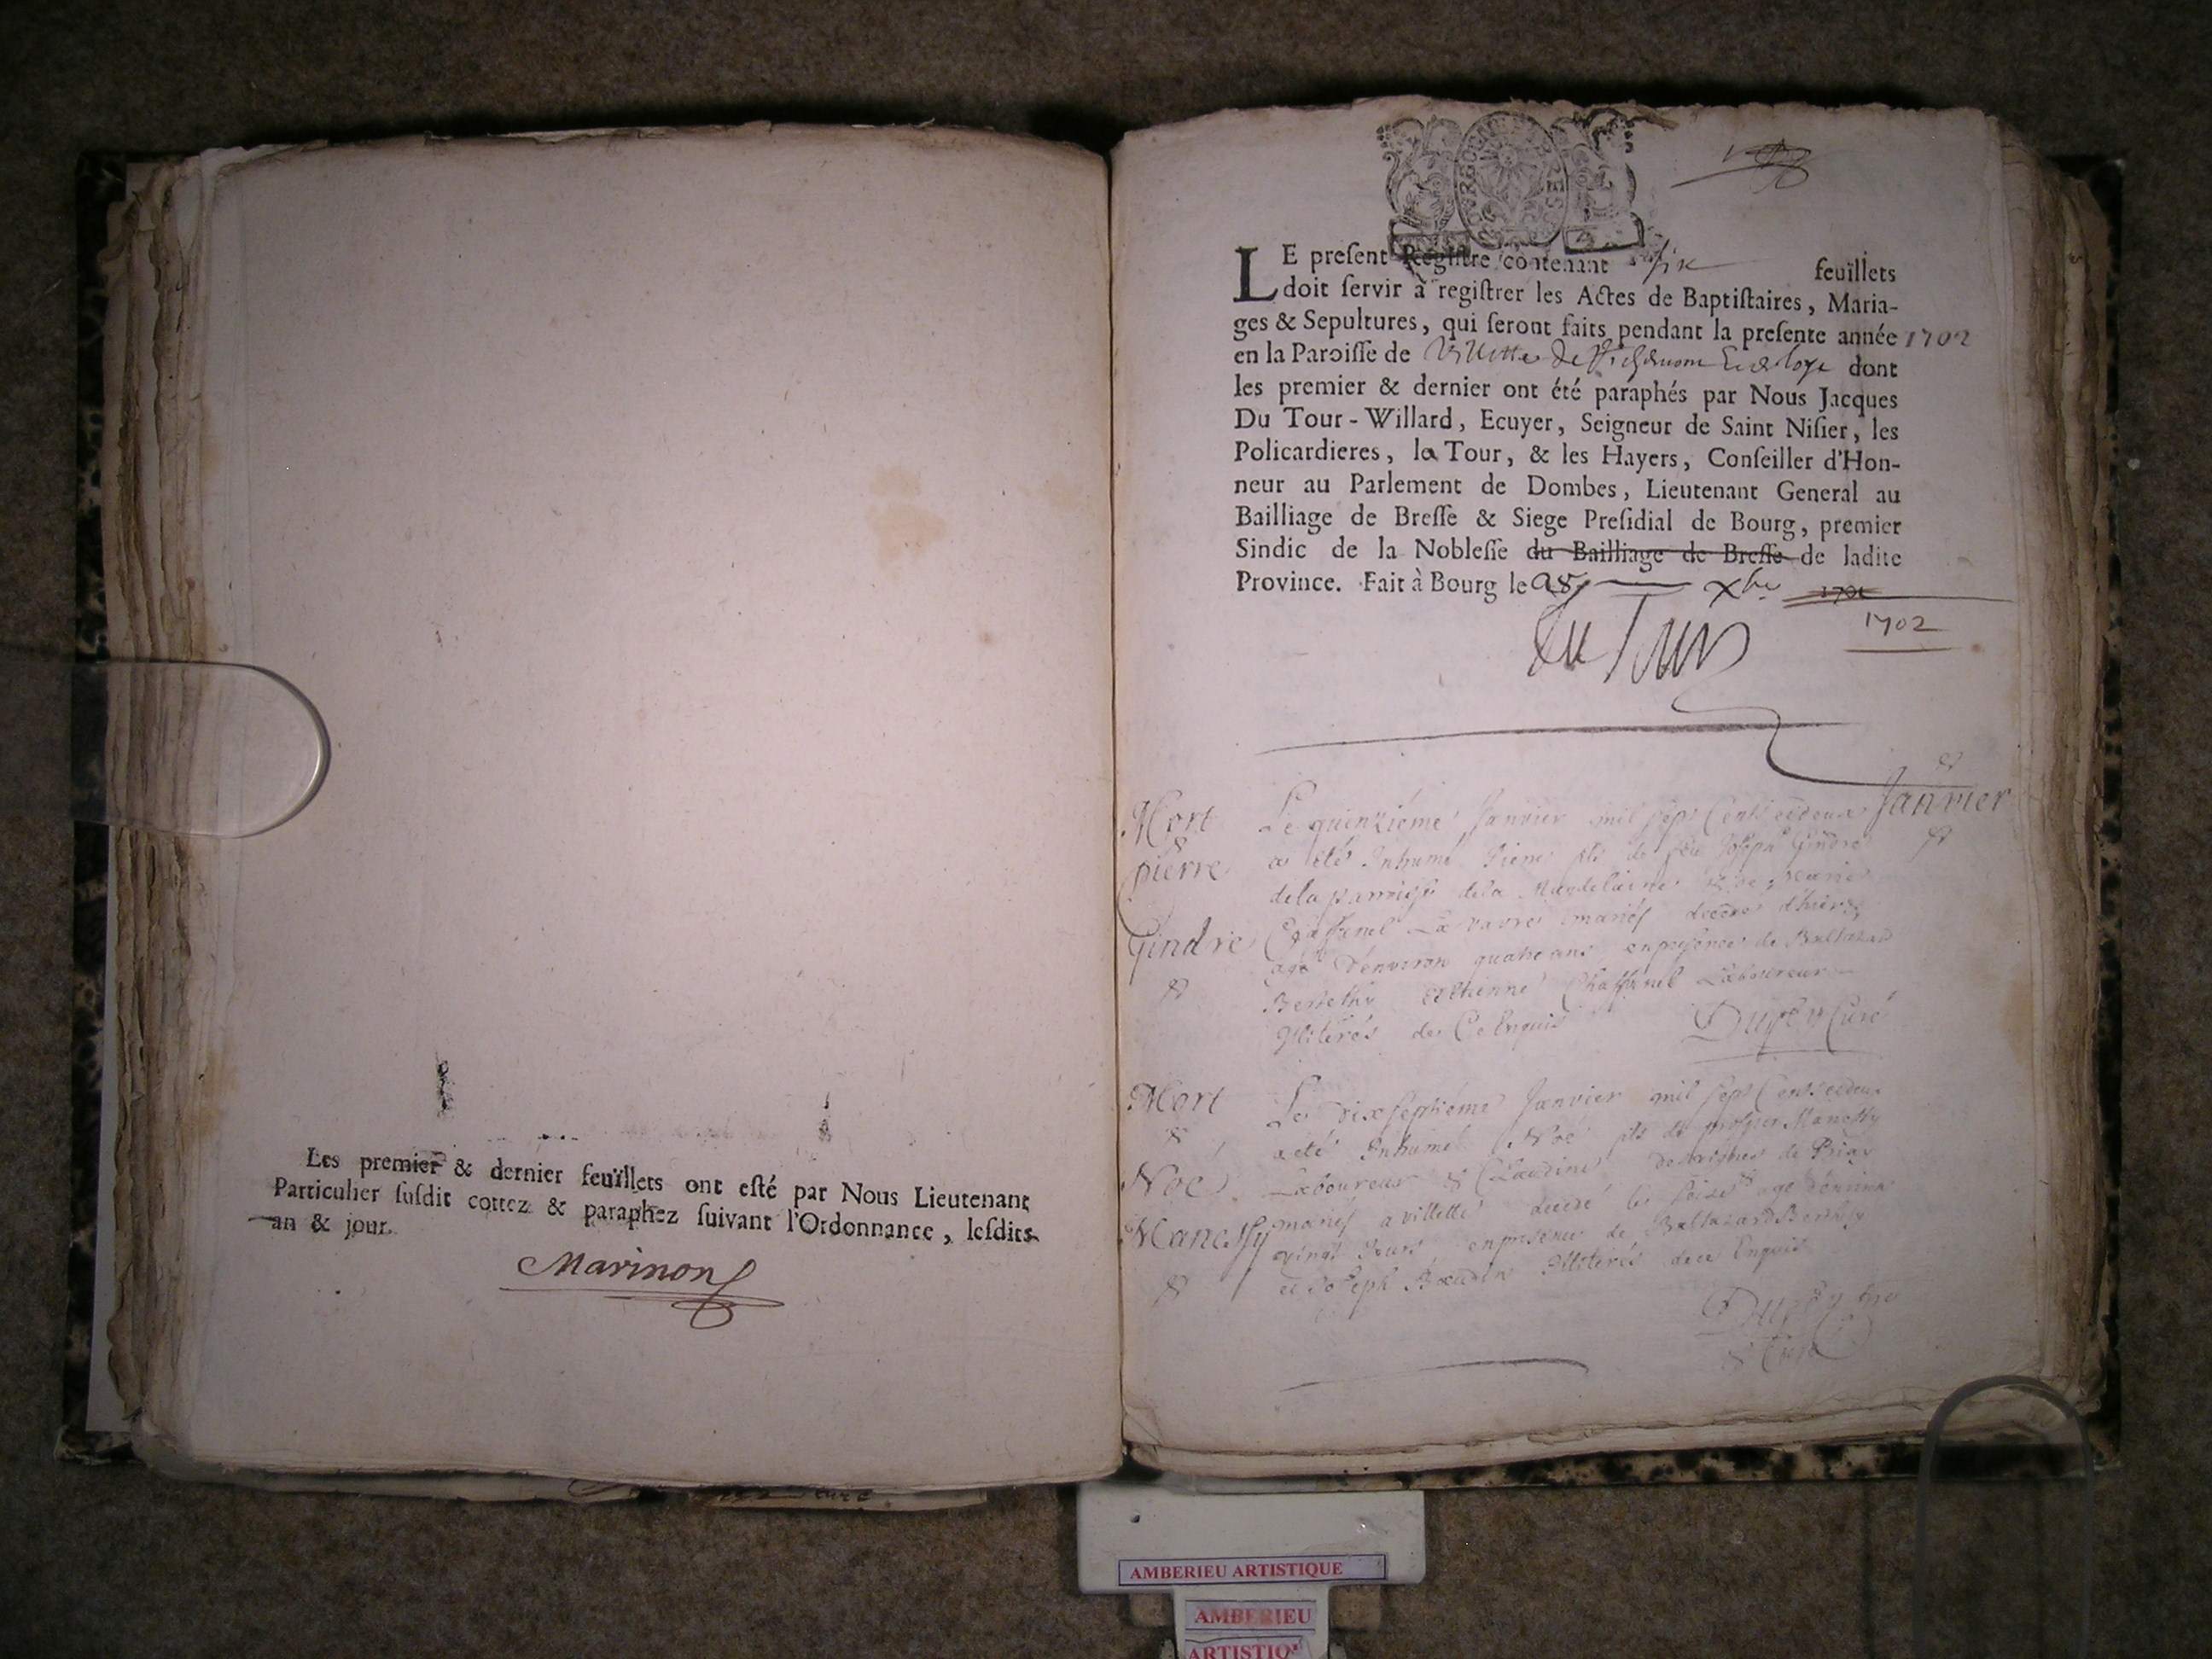 Les premier & dernier feuïllets ont eſté par Nous Lieutenant
Particulier ſuſdit cottez & paraphez ſuivant l'Ordonnance, leſdits
an & jour.
Marinon
LE preſent Regiſtre contenant ſix feuïllets
doit ſervir à regiſtrer les Actes de Baptiſtaires, Maria-
ges & Sepultures, qui ſeront faits pendant la preſente année 1702
en la Paroiſſe de Villette de dont
les premier & dernier ont été paraphés par Nous Jacques
Du Tour-Willard, Ecuyer, Seigneur de Saint Niſier, les
Policardieres, la Tour, & les Hayers, Conſeiller d'Hon-
neur au Parlement de Dombes, Lieutenant General au
Bailliage de Breſſe & Siege Preſidial de Bourg, premier
Sindic de la Nobleſſe du Bailliage de Breſſe de ladite
Province. Fait à Bourg le Xbre 1701
1702
Du Tour
Janvier
Mort
pierre
Gindre
Le quinziéme Janvier mil sept Cents et deux
a eté Inhumé Pierre fils de feu Joseph Gindre
de la parroisse de la Mandelaine
mariés decedé d'hier
agé d'environ quatre ans en presence de Baltazard
Berrethy Chaffanel Laboureur
Illiterés de Ce Enquis
Cure
Mort
Noé
Manessy
Le dixseptiéme Janvier mil sept Cents et deux
a eté Inhumé Noé fils de prosper Manessy
Laboureur & Claudine de Priay
mariés a villette decedé le seize agé d'environ
vingt Jours en presence de Baltazard Berrethy
et Joseph Illiterés de ce Enquis
& Curé
AMBERIEU ARTISTIQUE
AMBERIEU
ARTISTIQ